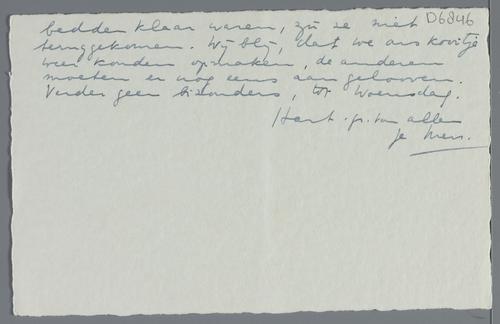 bedden klaar waren, zijn ze niet D6846
teruggekomen. Wij blij, dat we ons kooitje
weer konden opmaken, de anderen
moeten er nog eens aan gelooven.
Verder geen bizonders, tot Woensdag.
Hart. gr. van allen
je